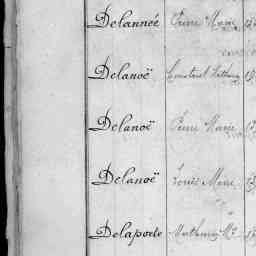 Delannée Pierre Marie
Delanoë Constant Mathurin
Delanoë Pierre Marie
Delanoë Louis Marie
Delaporte Mathurin Me